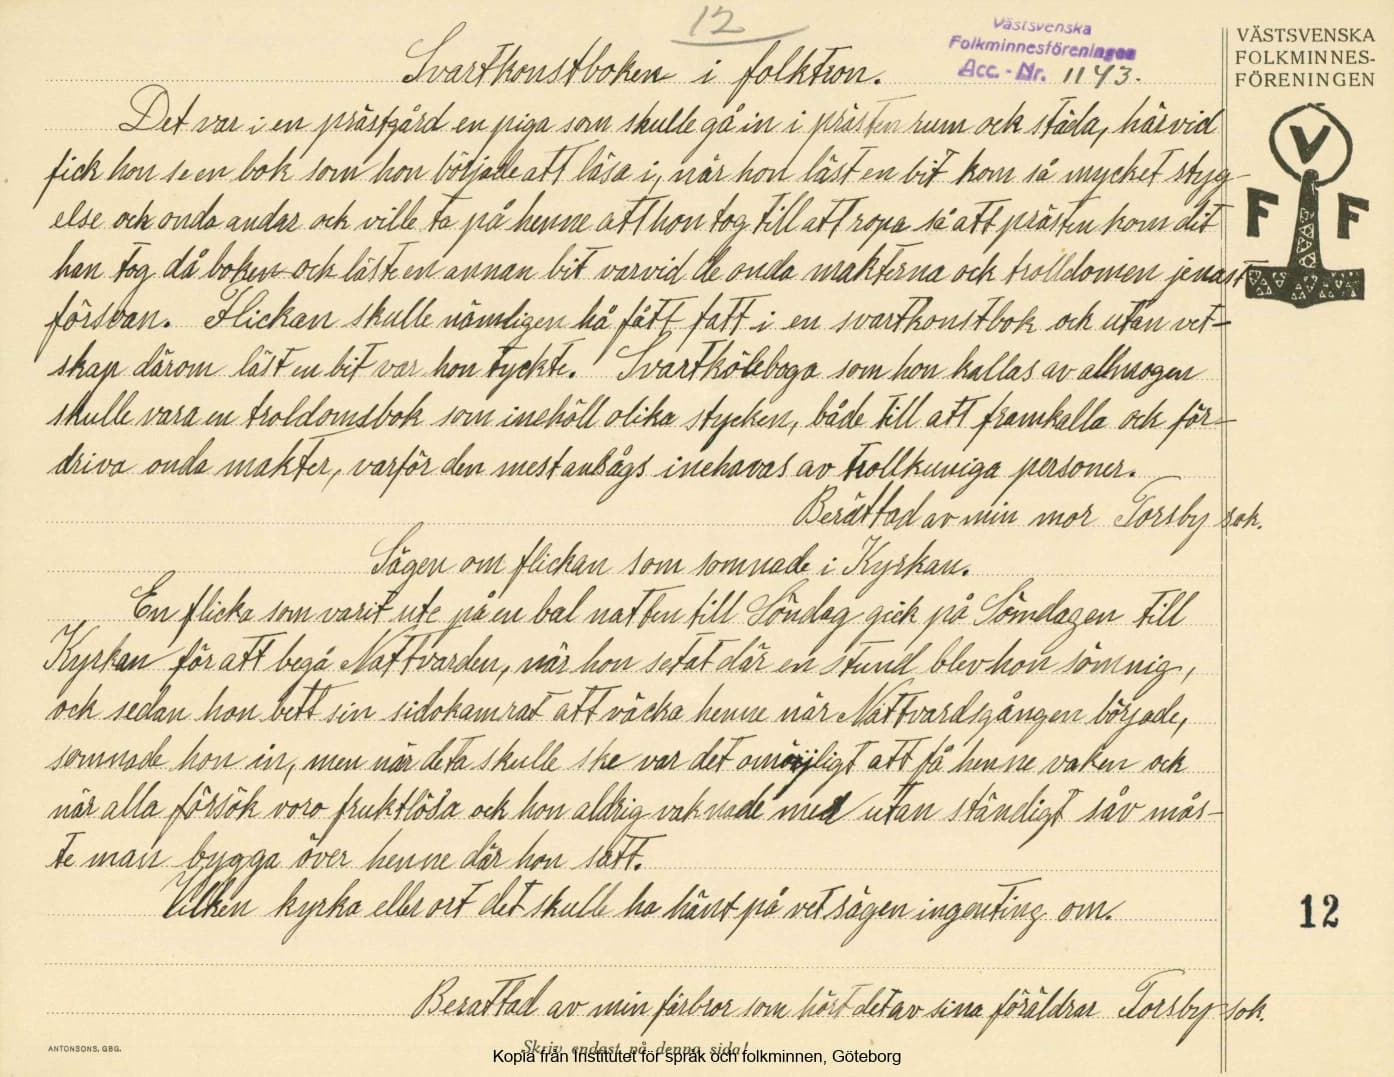 12
Västsvenska
Folkminnesföreningen
Acc. - Nr. 1143.
VÄSTSVENSKA
FOLKMINNES-
FÖRENINGEN
V
F F
Svartkonstboken i folktron.
Det var i en prästgård en piga som skulle gå in i prästen rum ock städa, härvid
fick hon se en bok som hon började att läsa i, när hon läst en bit kom så mycket styg-
else ock onda andar ock ville ta på henne att hon tog till att ropa så att prästen kom dit
han tog då boken ock läste en annan bit varvid de onda makterna ock trolldomen jenast
försvan. Flickan skulle nämligen hå fått fatt i en svartkonstbok ock utan vet-
skap därom läst en bit var hon tyckte. Svartköleboga som hon kallas av allmogen
skulle vara en troldomsbok som inehöll olika stycken, både till att framkalla ock för-
driva onda makter, varför den mest ansågs inehavas av trollkunniga personer.
Berättad av min mor Torsby sok.
Sägen om flickan som somnade i Kyrkan.
En flicka som varit ute på en bal natten till Söndag gick på Söndagen till
Kyrkan för att begå Nattvarden, när hon setat där en stund blev hon sömnig,
ock sedan hon bett sin sidokamrat att väcka henne när Nattvardsgången började,
somnade hon in, men när deta skulle ske var det omöjligt att få henne vaken ock
när alla försök voro fruktlösa ock hon aldrig vaknade med utan ständigt såv mås-
te man bygga över henne där hon satt.
Vilken kyrka eller ort det skulle ha hänt på vet sägen ingenting om.
12
Berattad av min farbror som hört det av sina föräldrar Torsby sok.
ANTONSONS, GBG.
Skriv endast på denna sida!
Kopia från Institutet för språk och folkminnen, Göteborg